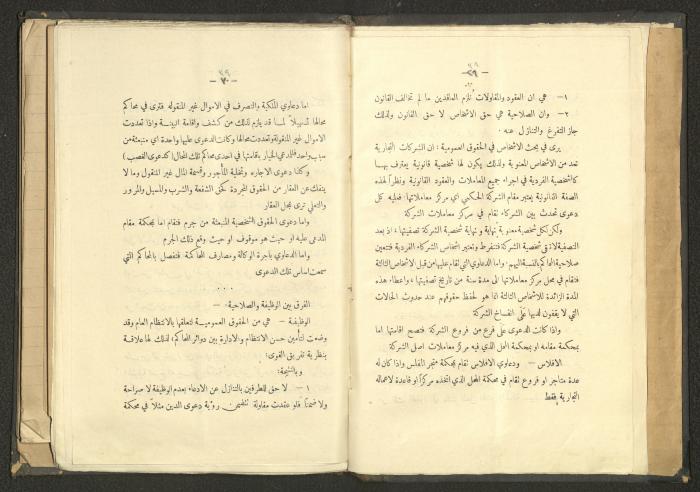 — ٦٩ —
١ — هي ان العقود والمقاولات تُلزم العاقدين ما لم تخالف القانون
٢ — وان الصلاحية هي حق الاشخاص لا حق القانون ولذلك
جاز التفرغ والتنازل عنه.
يرى في بحث الاشخاص في الحقوق العمومية: ان الشركات التجارية
تعد من الاشخاص المعنوية ولذلك يكون لها شخصية قانونية يعترف بها
كالشخصية الفردية في اجراء جميع المعاملات والعقود القانونية ونظراً لهذه
الصفة القانونية يعتبر مقام الشركة الحكمي اي مركز معاملاتها؛ فعليه كل
دعوى تحدث بين الشركاء تقام في مركز معاملات الشركة
ولكن لكل شخصية معنوية نهاية ونهاية شخصية الشركة تصفيتها، اذ بعد
التصفية لا شخصية للشركة فتنفرط وتعتبر اشخاص الشركاء الفردية فتتعين
صلاحية الحاكم بالنسبة اليهم. واما الدعاوي التي تقام عليها من قبل الاشخاص الثالثة
فتقام في محل مركز معاملاتها الى مدة سنة من تاريخ تصفيتها، واعطاء هذه
المدة الزائدة للاشخاص الثالثة انما هو لحفظ حقوقهم عند حدوث الحالات
التي لا يقفون لديها على انفساخ الشركة
واذا كانت الدعوى على فرع من فروع الشركة فتصح اقامتها اما
بمحكمة مقامه او بمحكمة المحل الذي فيه مركز معاملات اصل الشركة
الافلاس — ودعاوي الافلاس تقام بمحكمة متجر المفلس واذا كان له
عدة متاجر او فروع تقام في محكمة المحل الذي اتخذه مركزاً او قاعدة لاعماله
التجارية فقط
— ٧٠ —
اما دعاوي الملكية والتصرف في الاموال غير المنقوله فترى في محاكم
محالها تسهيلاً لما قد يلزم لذلك من كشف واقامة البينة واذا تعددت
الاموال غير المنقولة وتعددت محالها وكانت الدعوى عليها واحدة اي منبعثة من
سبب واحد فللمدعي الخيار باقامتها في احدى محاكم تلك المحال (كدعوى الغصب)
وكذا دعوى الاجاره وتخلية المأجور وقسمة المال غير المنقول وما لا
ينفك عن العقار من الحقوق المجردة كحق الشفعة والشرب والمسيل والمرور
والتعلي ترى بمحل العقار
واما دعوى الحقوق الشخصية المنبعثة من جرم فتقام اما بمحكمة مقام
المدعى عليه او حيث هو موقوف او حيث وقع ذلك الجرم
واما الدعاوي باجرة الوكالة ومصارف المحاكمة فتفصل بالمحاكم التي
سمعت اساس تلك الدعوى
٠ ٠ ٠
الفرق بين الوظيفة والصلاحية. —
الوظيفة — هي من الحقوق العمومية لتعلقها بالانتظام العام وقد
وضعت لتأمين حسن الانتظام والادارة بين دوائر المحاكم، لذلك لها علاقة
بنظرية تفريق القوى؛
وبالنتيجة:
١ — لا حق للطرفين بالتنازل عن الادعاء بعدم الوظيفة لا صراحة
ولا ضمناً فلو عقدت مقاولة تتضمن رؤية دعوى الدين مثلاً في محكمة